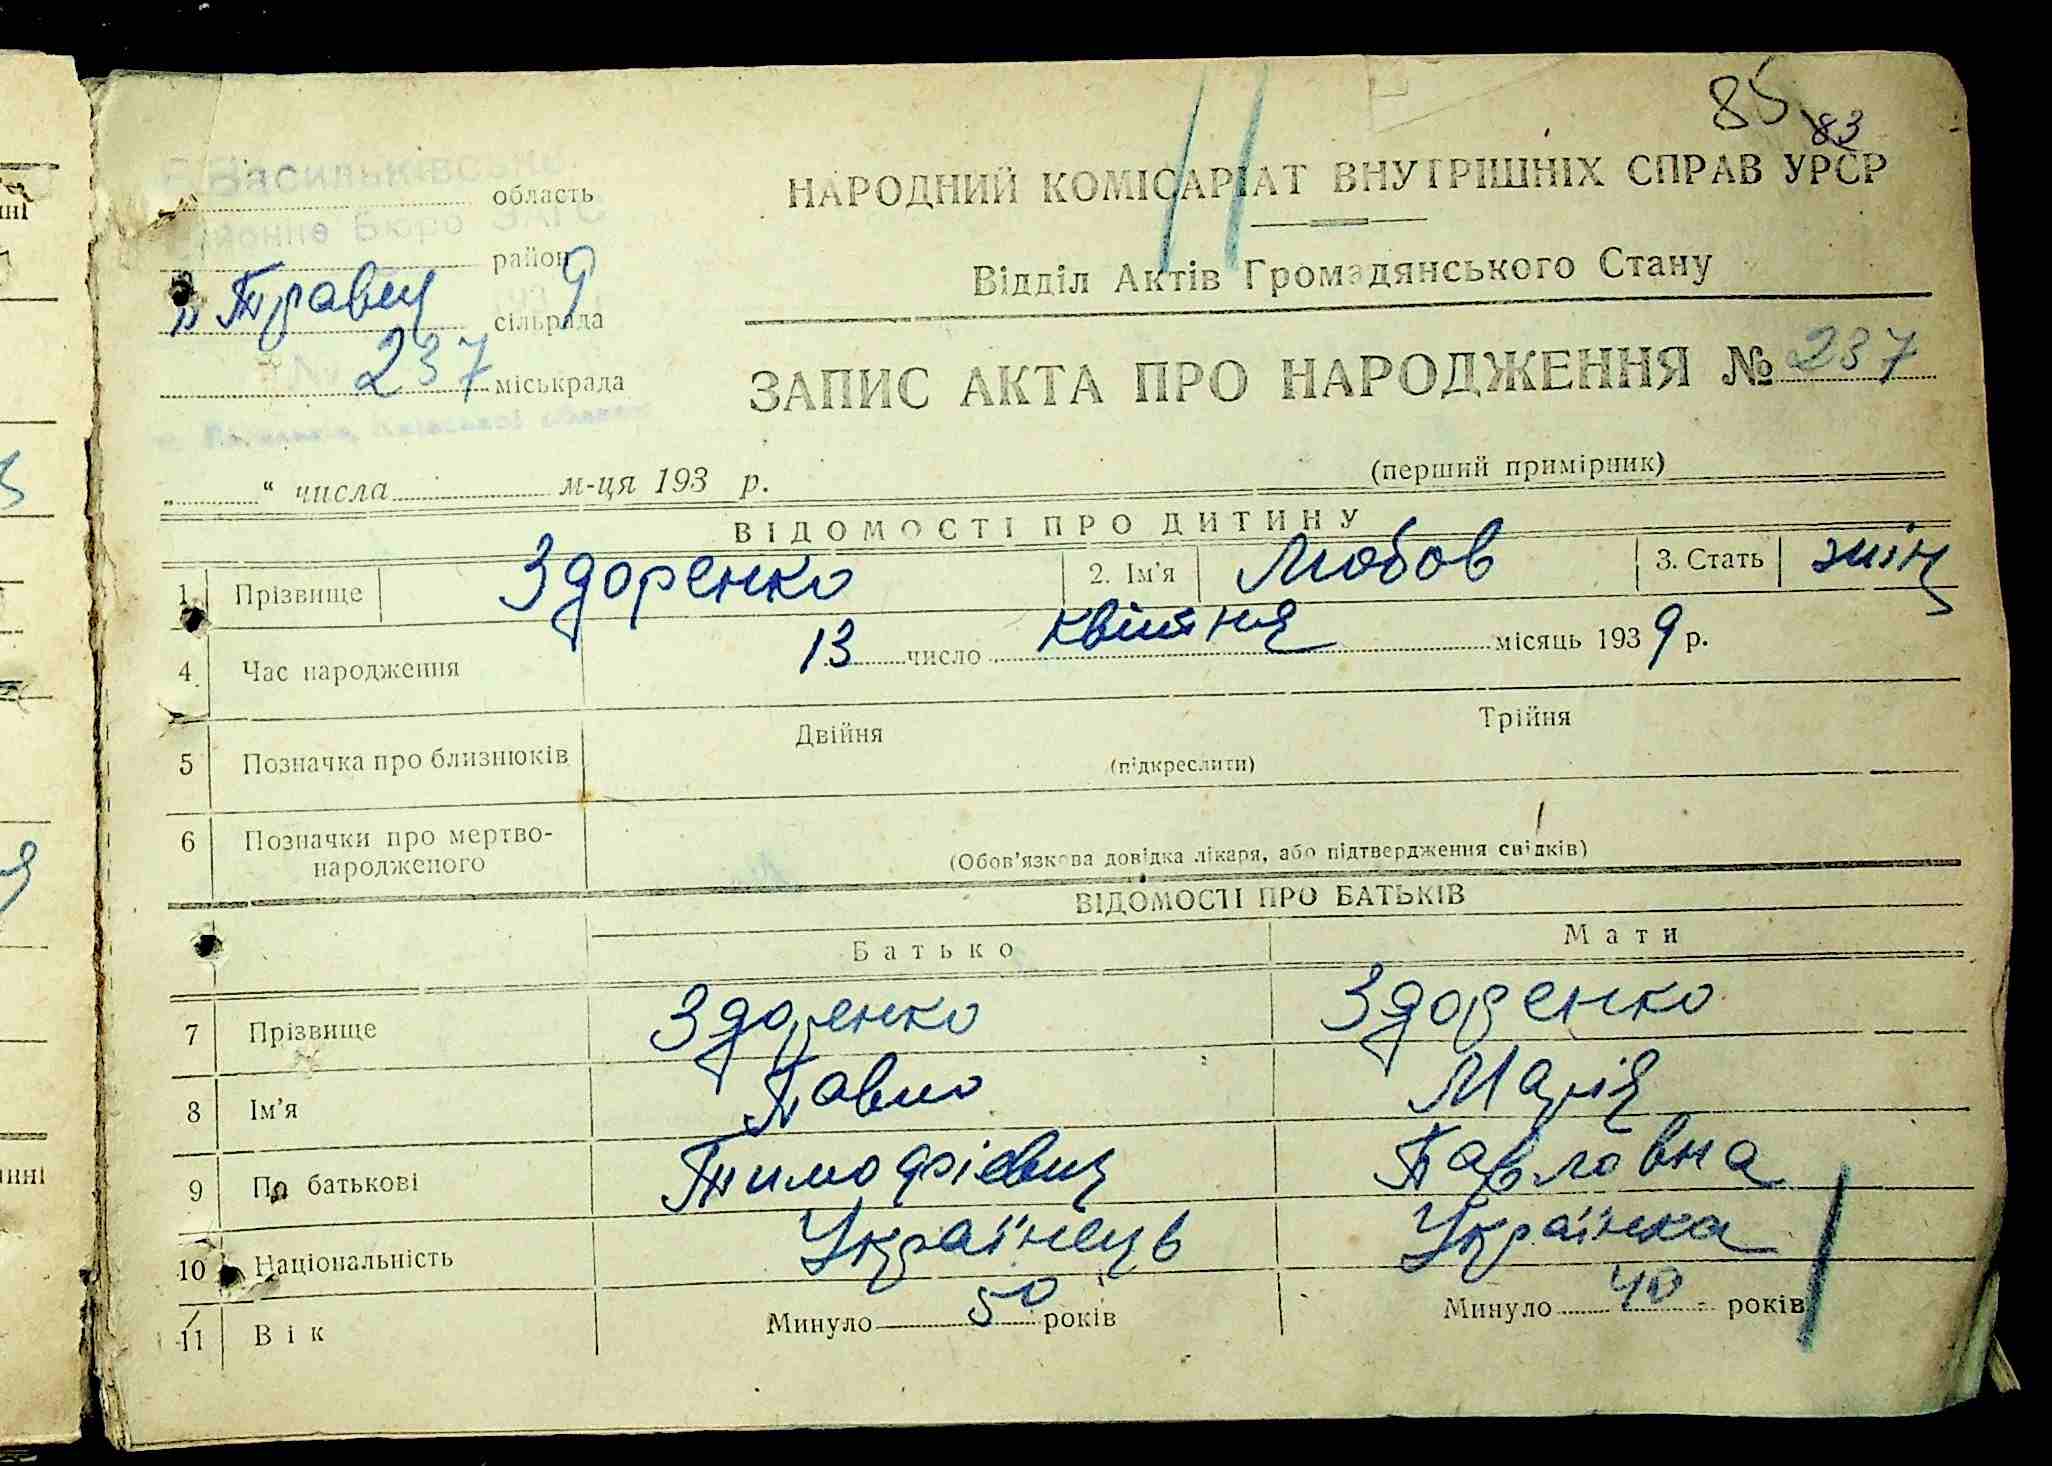 85
83
Васильківське
область
НАРОДНИЙ КОМІСАРІАТ ВНУТРІШНІХ СПРАВ УРСР
Районне Бюро ЗАГС
район
Відділ Актів Громадянського Стану
" Травня 9
сільрада
№ 237 міськрада
ЗАПИС АКТА ПРО НАРОДЖЕННЯ № 237
м. Васильків, Київської області
(перший примірник)
„ “ числа м-ця 193 р.
ВІДОМОСТІ ПРО ДИТИНУ
1 Прізвище Здоренко 2. Ім'я Любов 3. Стать жіноч
4 Час народження 13 число квітня місяць 1939 р.
5 Позначка про близнюків Двійня Трійня
(підкреслити)
6 Позначки про мертво-
народженого
(Обов'язкова довідка лікаря, або підтвердження свідків)
ВІДОМОСТІ ПРО БАТЬКІВ
Батько Мати
7 Прізвище Здоренко Здоренко
8 Ім'я Павло Марія
9 По батькові Тимофієвич Павловна
10 Національність Українець Українка
11 Вік Минуло 50 років Минуло 40 років